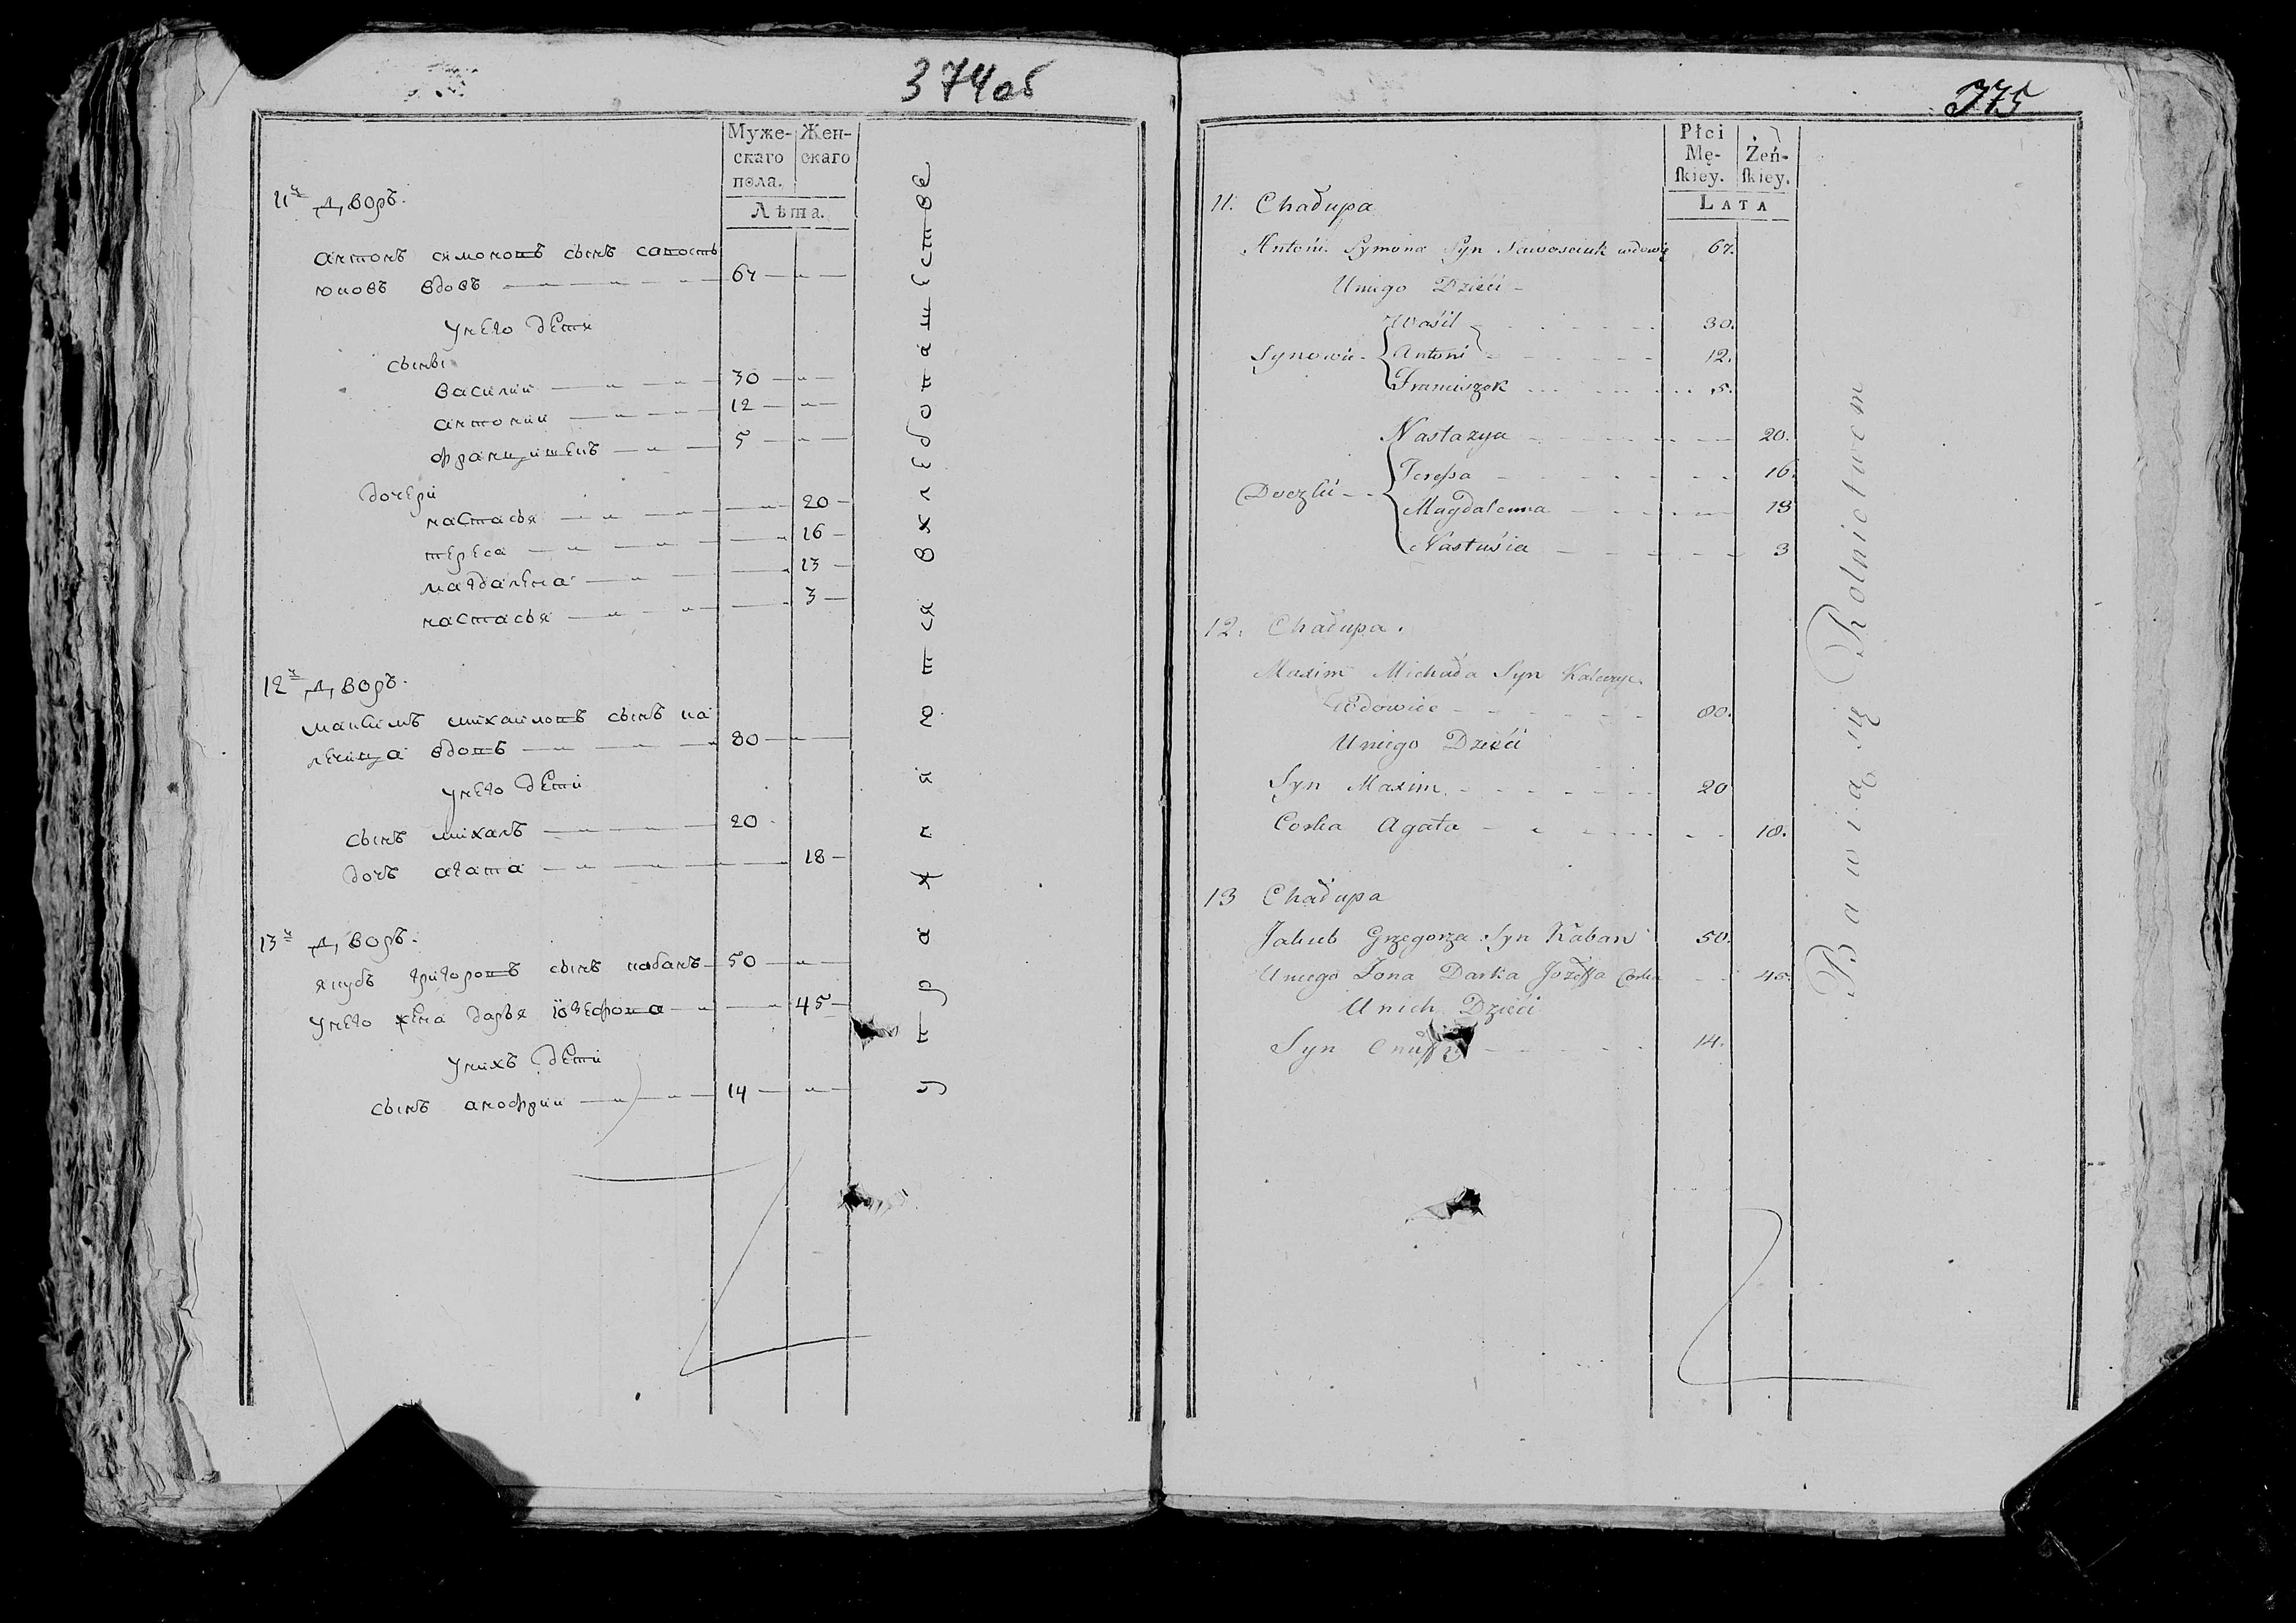 374об
Муже- Жен-
скаго скаго
пола.
Лѣта.
11й дворъ.
антонъ симоновъ сынъ савость
юковъ вдовъ 67
у него дети
сыны
василий 30
антоний 12
францишекъ 5
дочери
настасья 20
тереса 16
магдалена 13
настасья 3
12й дворъ.
максимъ михаиловъ сынъ ка
лечица вдовъ 80
у него дети
сынъ михалъ 20
дочь агата 18
13й дворъ.
якубъ григоровъ сынъ кабанъ 50
у него жена дарья іозефова 45
у нихъ дети
сынъ анофрий 14
упражняются в хлебопашестве
375
Płci
Mę- Żeń-
skiey. skiey.
LATA
11. Chałupa
Antoni Symona Syn Sawosciuk wdowiec 67.
U niego Dzieći
Wasil 30.
Synowie Antoni 12.
Franciszek 5.
Nastazya 20.
Teressa 16.
Magdalenna 13
Nastusia 3
12. Chałupa.
Maxim Michała Syn
Wdowiec 80.
U niego Dzieći
Syn Maxim 20
Corka Agata 18.
13 Chałupa
Jakub Grzegorza Syn Kaban 50.
U niego Żona Darka Jozeffa Corka 45.
U nich Dzieći
Syn 14.
Bawią się Rolnictwem